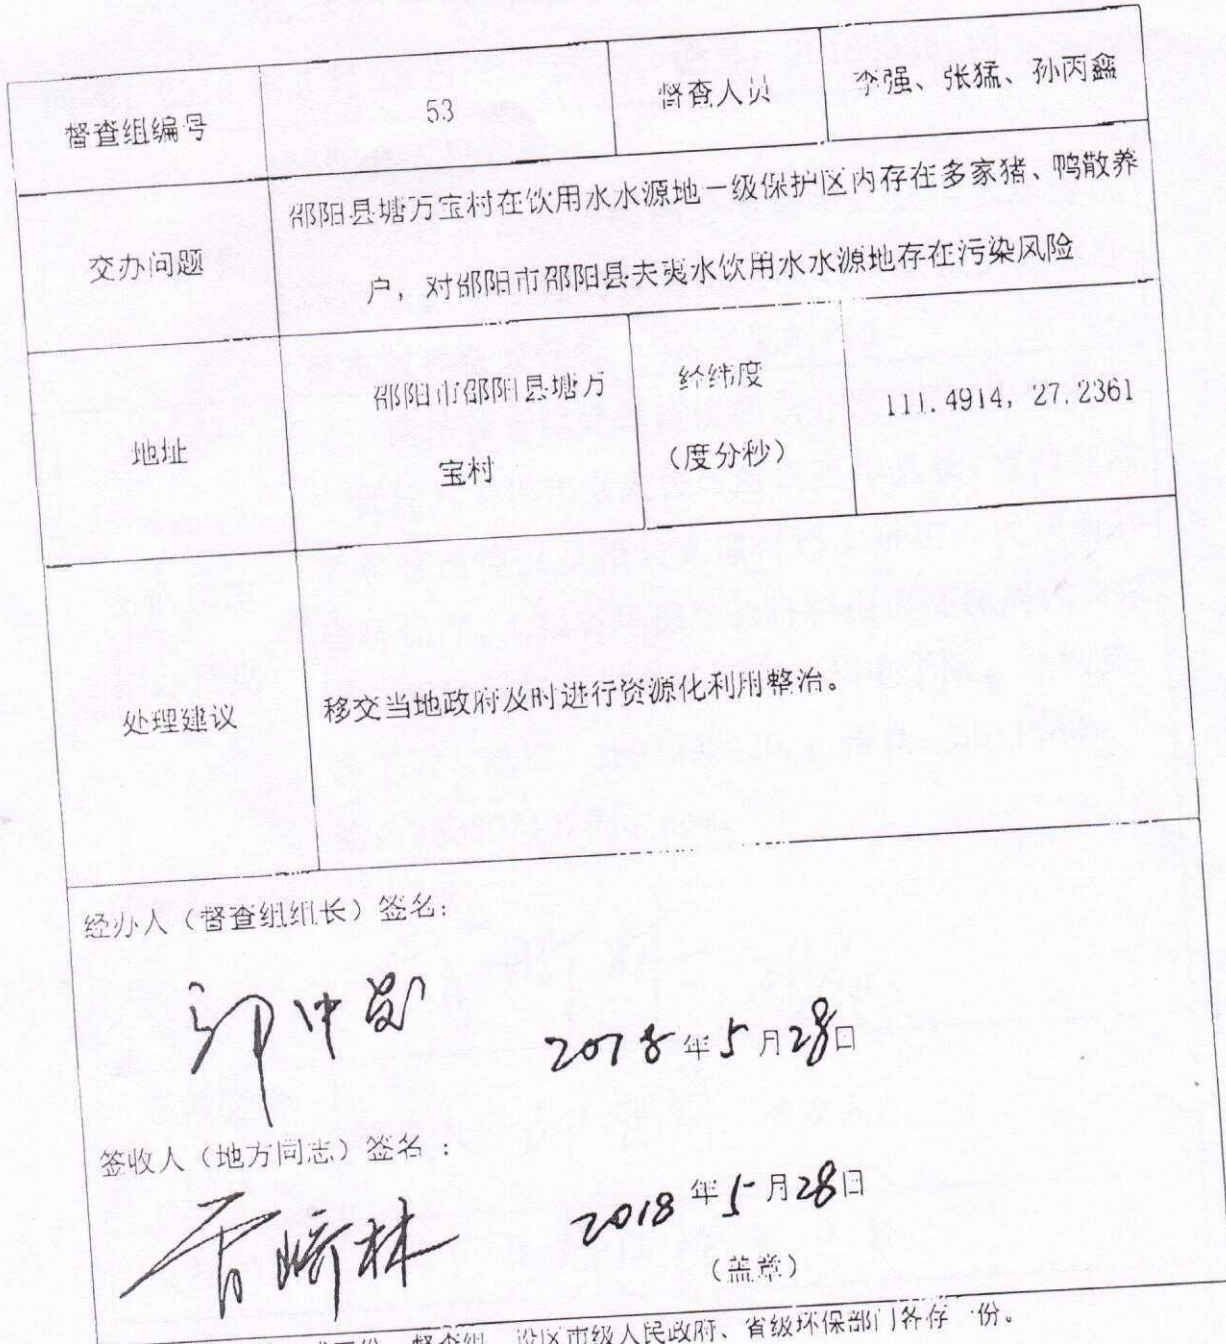 督查组编号 53 督查人员 李强、张猛、孙丙鑫
交办问题
邵阳县塘万宝村在饮用水水源地一级保护区内存在多家猪、鸭散养
户，对邵阳市邵阳县夫夷水饮用水水源地存在污染风险
地址
邵阳市邵阳县塘万
宝村
经纬度
（度分秒）
111.4914, 27.2361
处理建议
移交当地政府及时进行资源化利用整治。
经办人（督查组组长）签名：
2018年5月28日
签收人（地方同志）签名：
2018年5月28日
（盖章）
份，督查组、设区市级人民政府、省级环保部门各存一份。